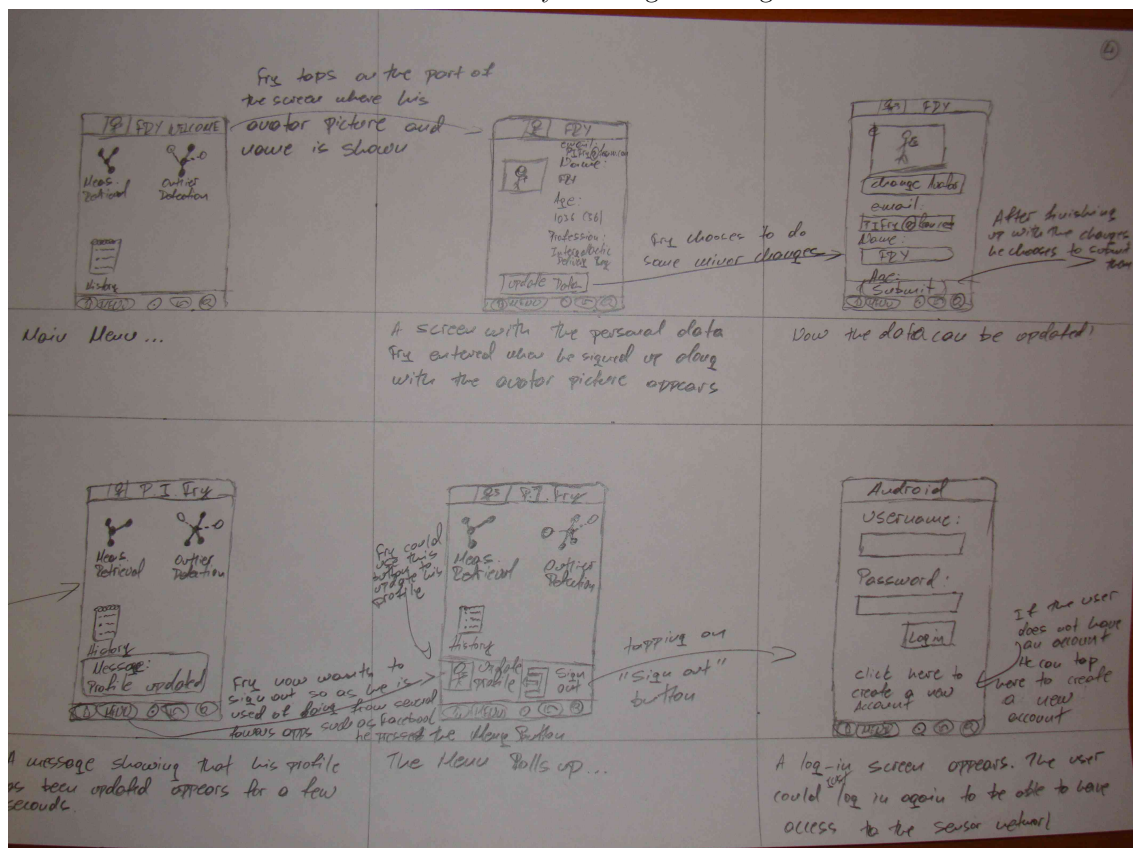 4
Fry taps on the part of
the screen where his
avatar picture and
name is shown
FRY WELCOME
Meas.
Retrieval
Outlier
Detection
History
MENU
Main Menu...
FRY
email:
Name:
FRY
Age:
1036 (36)
Profession:
Intergalactic
Update Data
MENU
Fry chooses to do
some minor changes
A screen with the personal data
Fry entered when he signed up along
with the avatar picture appears
FRY
change Avatar
email:
Name:
FRY
Age:
Submit
MENU
After finishing
up with the changes
he chooses to submit
them
Now the data can be updated!
P.I. Fry
Meas.
Retrieval
Outlier
Detection
History
Message:
Profile updated
MENU
Fry now wants to
sign out so as he is
used of doing from several
famous apps such as Facebook
he presses the Menu Button
A message showing that his profile
has been updated appears for a few
seconds.
Fry could
use this
button to
update his
profile
P.I. Fry
Meas.
Retrieval
Outlier
Detection
History
update
profile
Sign
out
MENU
The Menu Rolls up...
tapping on
"Sign out"
button
Android
Username:
Password:
Login
click here to
create a new
Account
MENU
If the user
does not have
an account
He can tap
here to create
a new
account
A log-in screen appears. The user
could log in again to be able to have
access to the sensor network